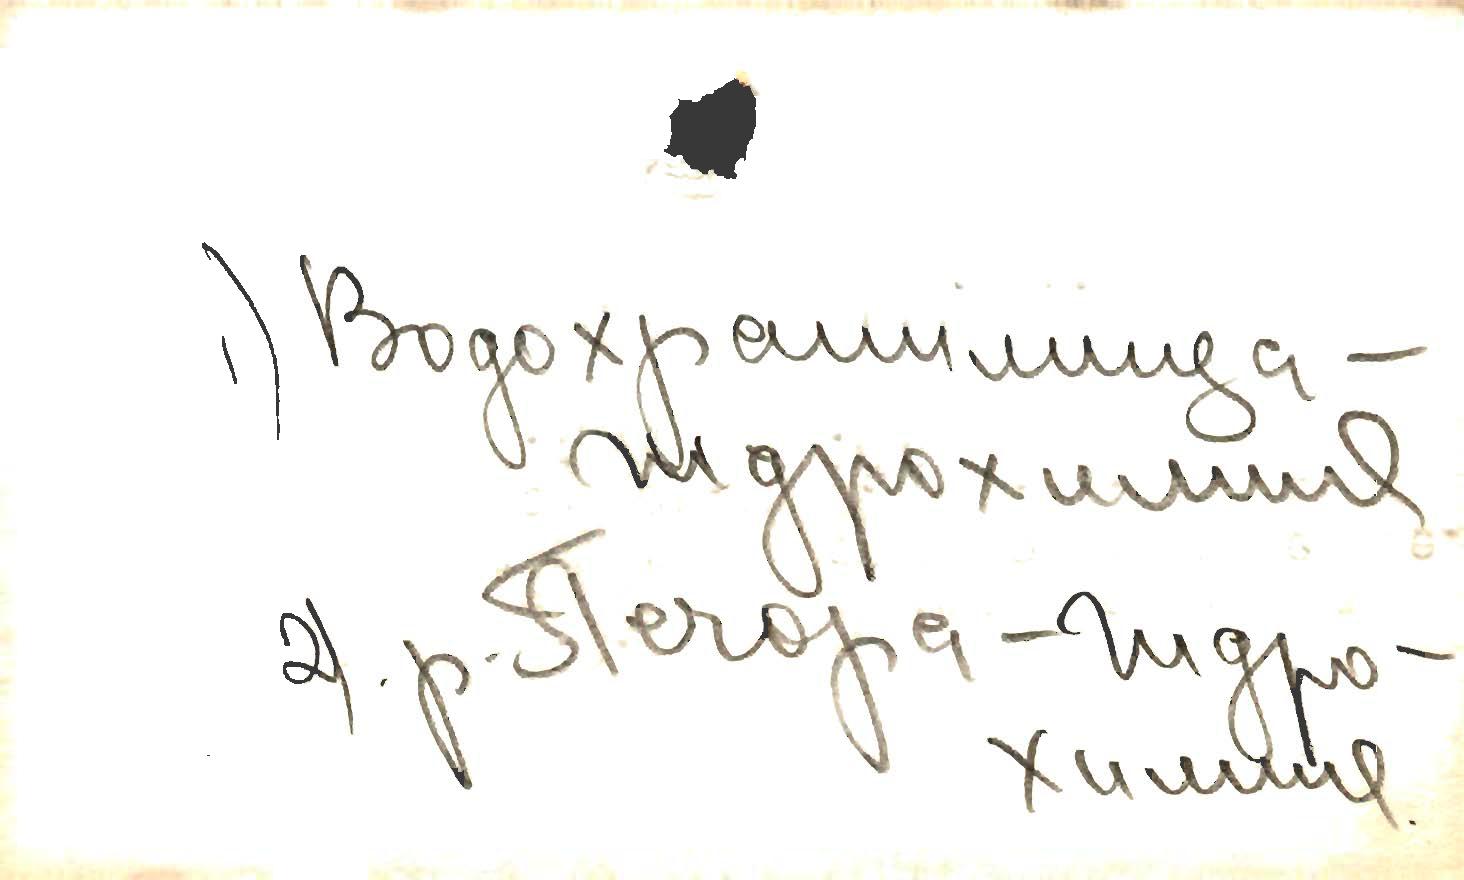 1) Водохранилища -
гидрохимия
2). р. Печора - гидро-
химия.